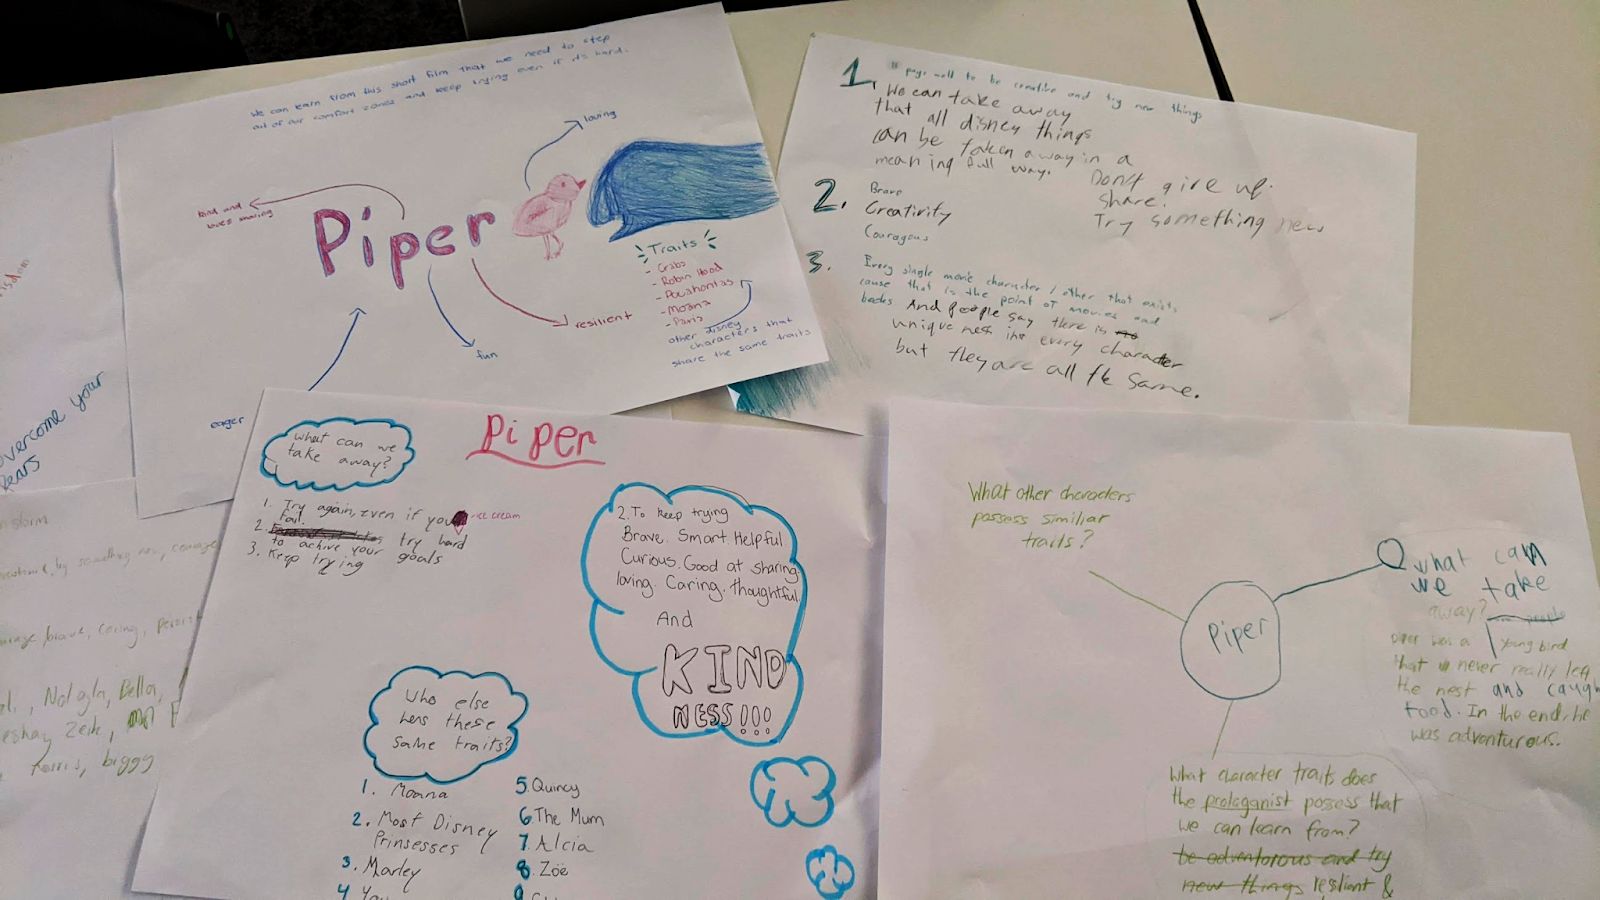 We can learn from this short film that we need to step
out of our comfort zones and keep trying even if it's hard.
loving
kind and
loves sharing
Piper
Traits
- Crabs
- Robin Hood
- Pocahontas
- Moana
- Paris
other disney
characters that
share the same traits
resilient
fun
eager
1. to be creative and try new things
We can take away
that all disney things
can be taken away in a
meaning full way.
Don't give up.
Share.
Try something new
2. Brave
Creativity
Couragous
3. Every single movie character / other that exists
cause that is the point of movies and
books And people say there is no
unique ness in every character
but they are all the same.
overcome your
fears
courage, brave, caring, persist
Bella,
Zeik,
biggy
Piper
What can we
take away?
1. Try again, even if you
fail.
ice cream
2. try hard
to achive your goals
3. Keep trying
2. To keep trying
Brave. Smart. Helpful
Curious. Good at sharing.
loving. Caring. thoughtful.
And
KIND
NESS!!!
Who else
has these
same traits?
1. Moana
2. Most Disney
Prinsesses
3. Marley
4
5. Quincy
6 The Mum
7 Alcia
8 Zoë
9
What other characters
possess similiar
traits?
Piper
What can
we take
away?
piper was a young bird
that never really left
the nest and caught
food. In the end, he
was adventurous.
What character traits does
the protaganist possess that
we can learn from?
be adventorous and try
new things resliant &